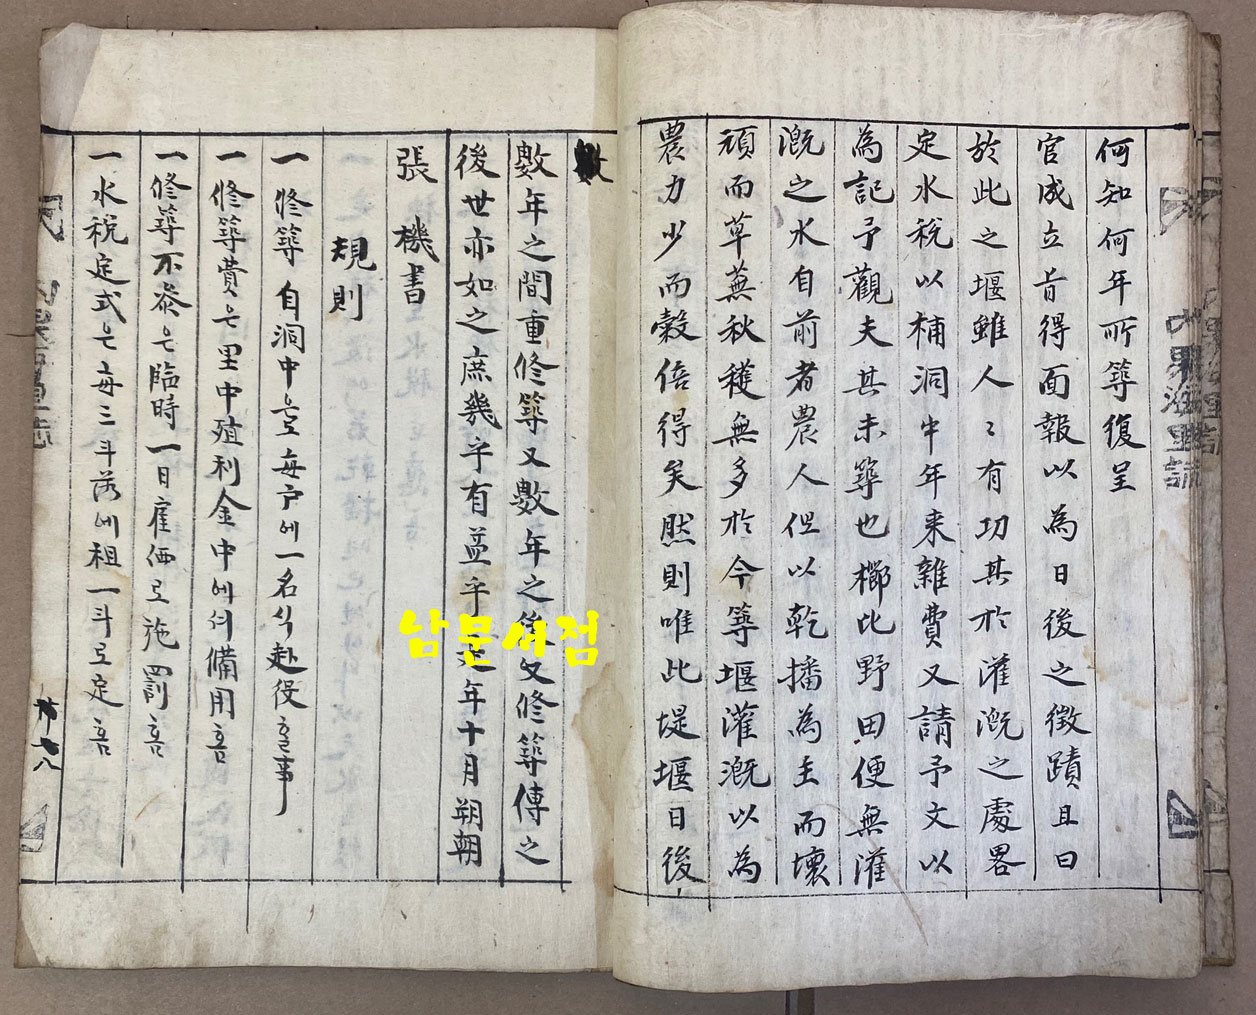 何知何年所築復呈
官成立旨得面報以為日後之徵蹟且曰
於此之堰雖人々有功其於灌漑之處畧
定水税以補洞中年来雜費又請予文以
為記予觀夫其未築也櫛比野田便無灌
漑之水自前者農人但以乾播為主而壞
頑而草蕪秋穫無多於今築堰灌漑以為
農力少而穀倍得矣然則唯此堤堰日後
數
數年之間重修築又數年之後又修築傳之
後世亦如之庶幾乎有益乎 年十月朔朝
張機書
規則
一 修築自洞中으로每户에一名식赴役할事
一 修築費은里中殖利金中에서備用홈
一 修築不參은臨時一日雇価로施罰홈
一 水税定式은每三斗落에租一斗로定홈
남문서점